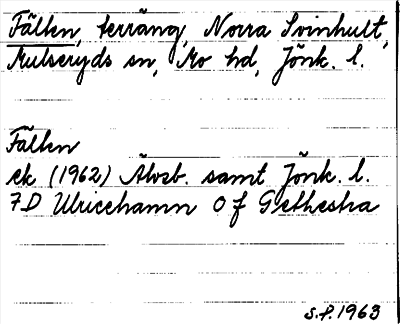 Fällen, terräng, Norra Svinhult,
Mulseryds sn, Mo hd, Jönk. l.
Fällen
ek (1962) Älvsb. samt Jönk. l.
7D Ulricehamn O f Gethestra
S.F. 1963